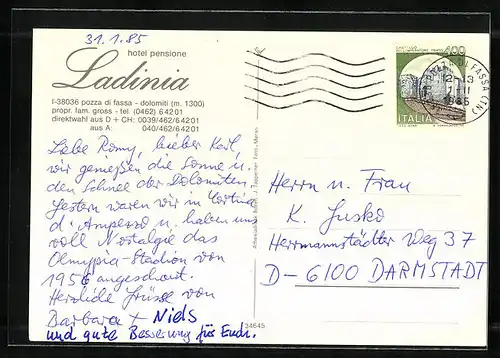 31.1.85
hotel pensione
Ladinia
I-38036 pozza di fassa - dolomiti (m. 1300)
propr. fam. gross - tel. (0462) 64201
direktwahl aus D + CH: 0039/462/64201
aus A: 040/462/64201
Liebe Romy, lieber Karl,
wir genießen die Sonne u.
den Schnee der Dolomiten.
Gestern waren wir in Cortina
d'Ampezzo u. haben uns
voll Nostalgie das
Olmypia-Stadion von
1956 angeschaut.
Herzliche Grüsse von
Barbara + Niels
und gute Besserung für Euch.
400
ITALIA
POZZA DI FASSA (TN)
12-13
1-II
1985
Herrn u. Frau
K. Jusko
Herrmannstädter Weg 37
D-6100 DARMSTADT
34645